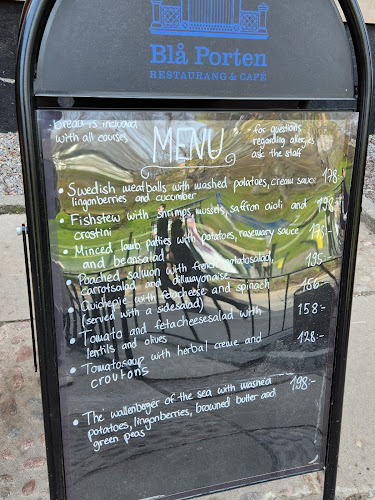 Blå Porten
RESTAURANG & CAFÉ
Bread is included
with all courses
MENU
for questions
regarding allergies
ask the staff
• Swedish meatballs with mashed potatoes, cream sauce 178-
lingonberries and cucumber
• Fishstew with shrimps, mussels, saffron aioli and 198-
crostini
• Minced lamb patties with potatoes, rosemary sauce 175-
and beansalad
• Poached salmon with french potatosalad, 195-
carrotsalad and dillmayonaise
• Quichepie with fetacheese and spinach 166-
(served with a sidesalad)
• Tomato and fetacheesesalad with 158:-
lentils and olives
• Tomatosoup with herbal creme and 128:-
croutons
• The wallenberger of the sea with mashed 198:-
potatoes, lingonberries, browned butter and
green peas